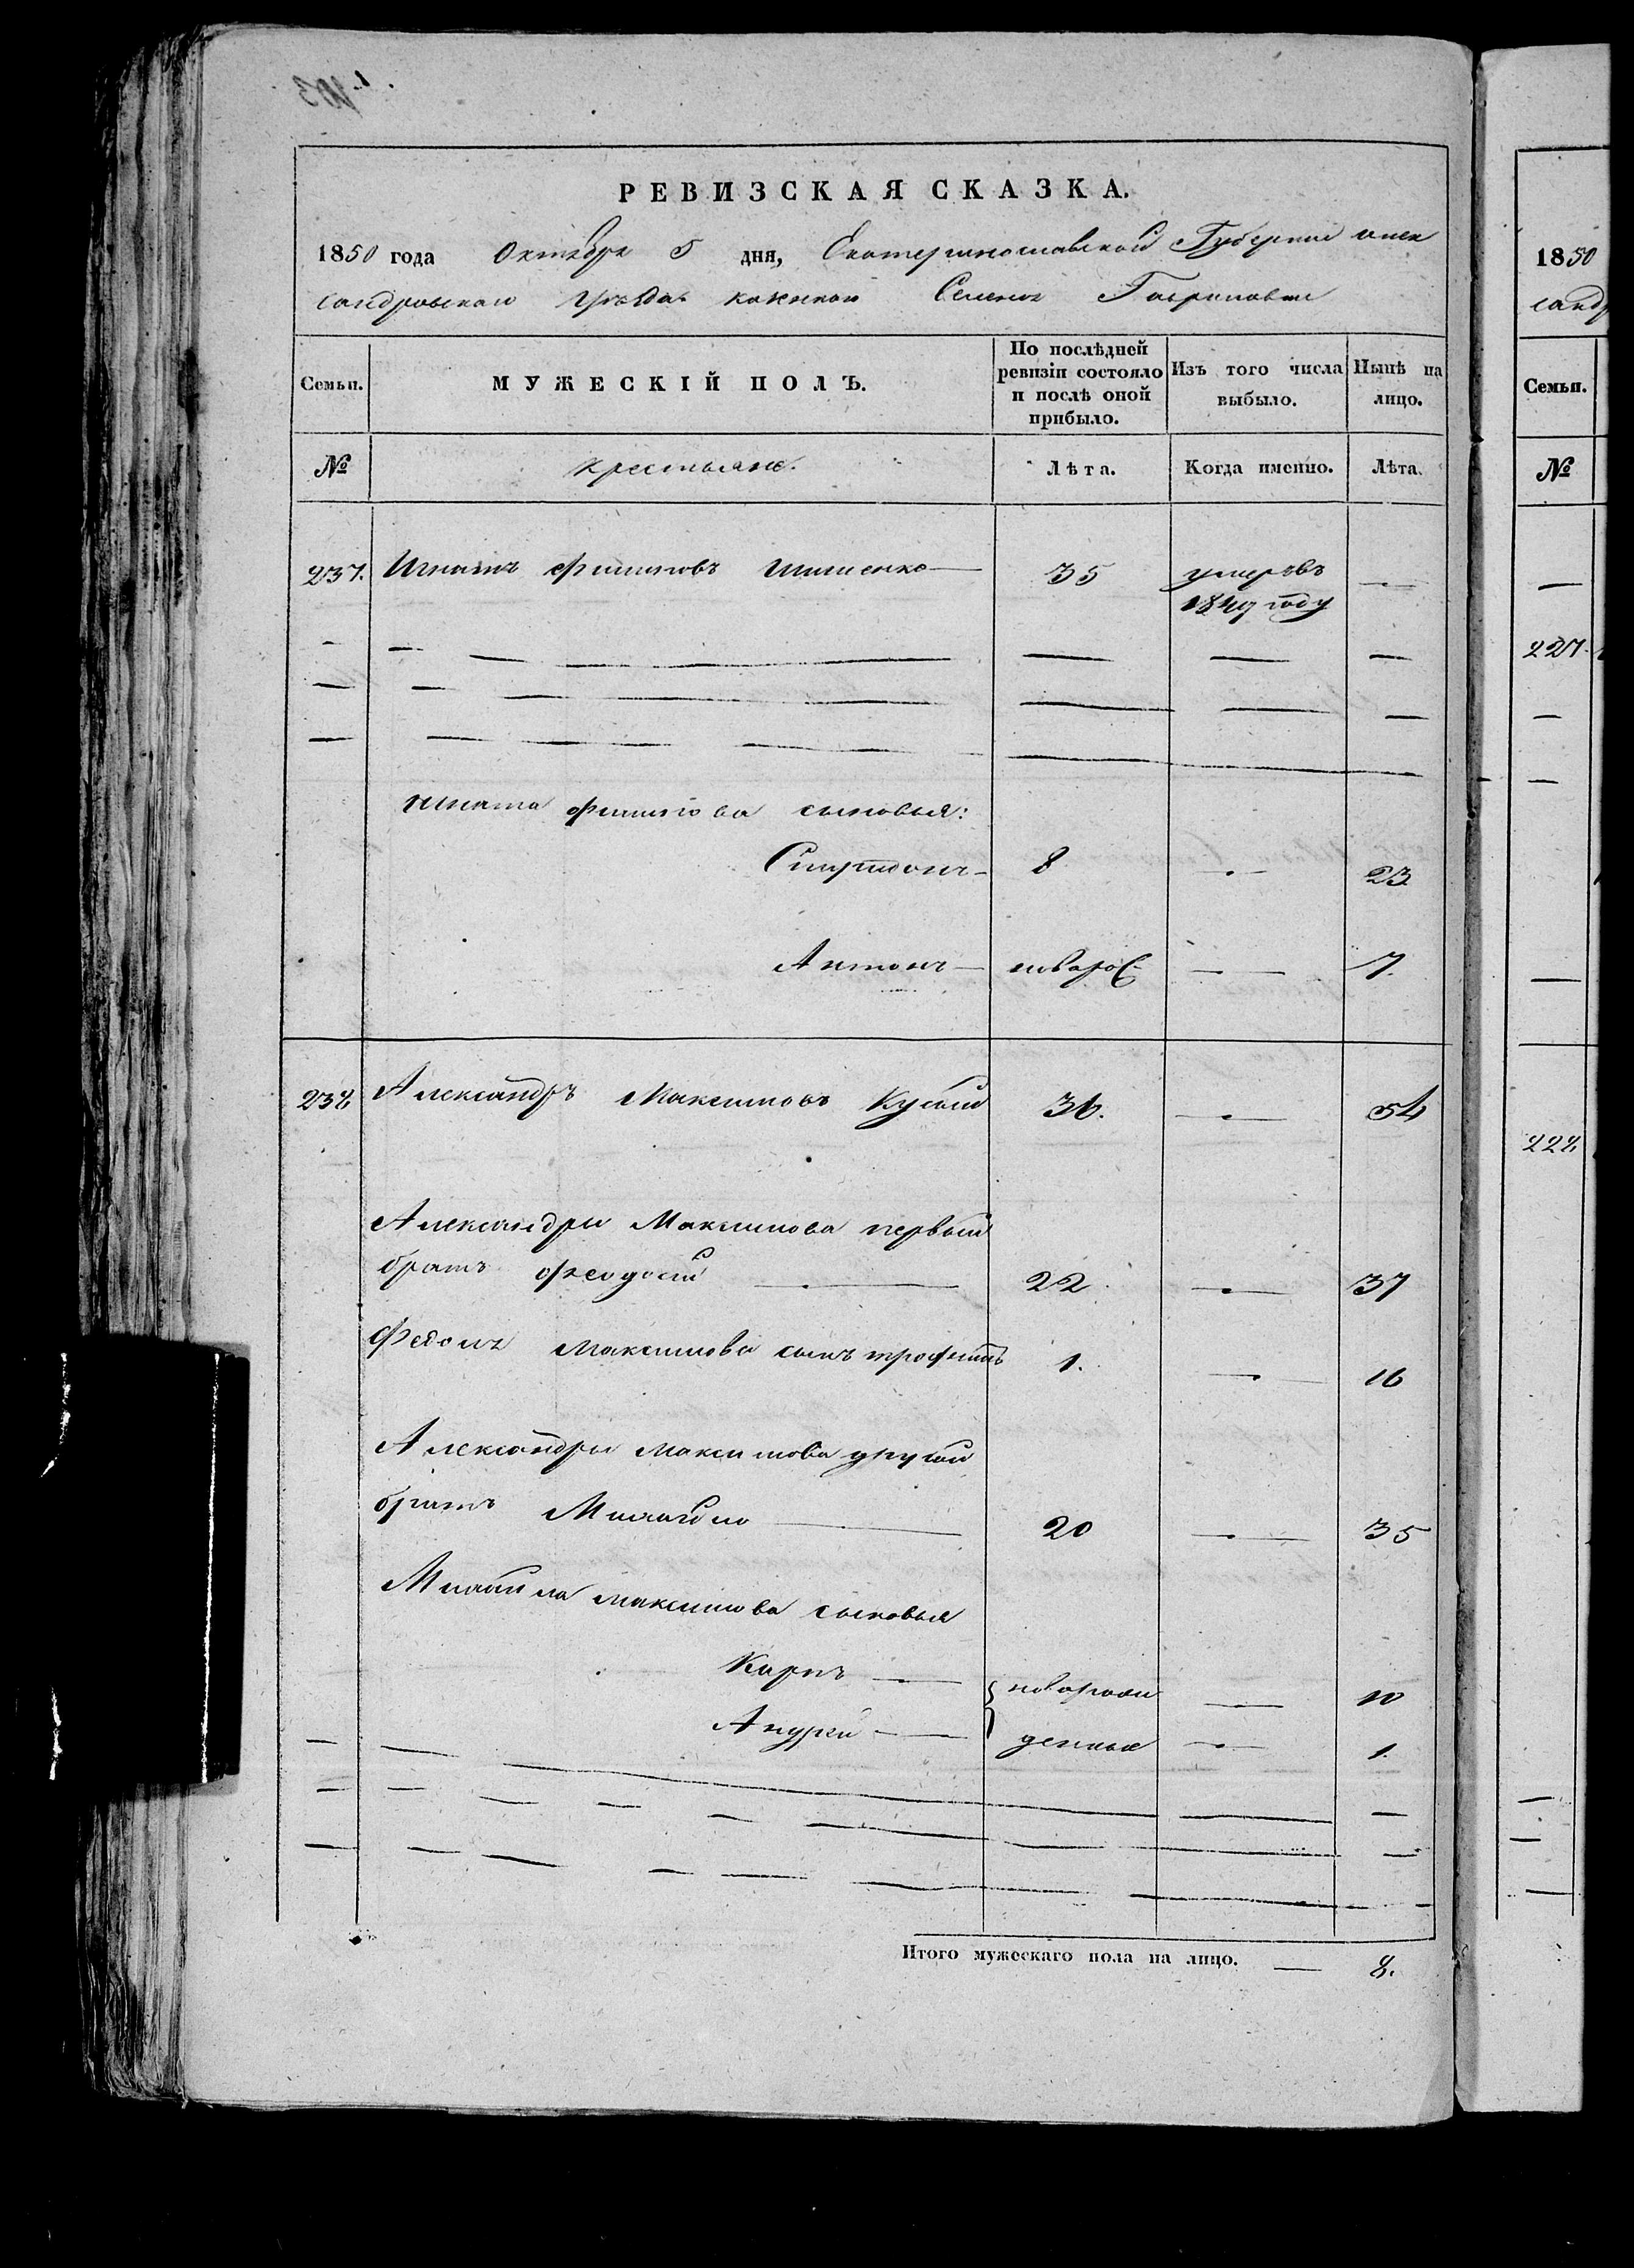 РЕВИЗСКАЯ СКАЗКА.
1850 года Октября 5 дня, Екатеринославской Губернии алек
сандровскаго уѣзда казеннаго Селенія Гавриловки
Семьи. МУЖЕСКІЙ ПОЛЪ. По послѣдней ревизіи состояло и послѣ оной прибыло. Изъ того числа выбыло. Нынѣ на лицо.
№ крестьяне. Лѣта. Когда именно. Лѣта.
237. Игнатъ Филиповъ 35 умеръ въ —
1849 году
Игната Филипова сыновья:
Спиридонъ — 8 — 23
Антонъ — новорож — 7.
238 Александръ Максимовъ 36. — 54
Александра Максимова первый
братъ Феодосій — 22 — 37
Максимова сынъ трофимъ 1. — 16
Александра Максимова другой
братъ Михайло — 20 — 35
Михайла Максимова сыновья
Карпъ — новорож — 10
Андрей — денные — 1.
Итого мужескаго пола на лицо. — 8.
1850
санд
Семьи.
№
227.
228